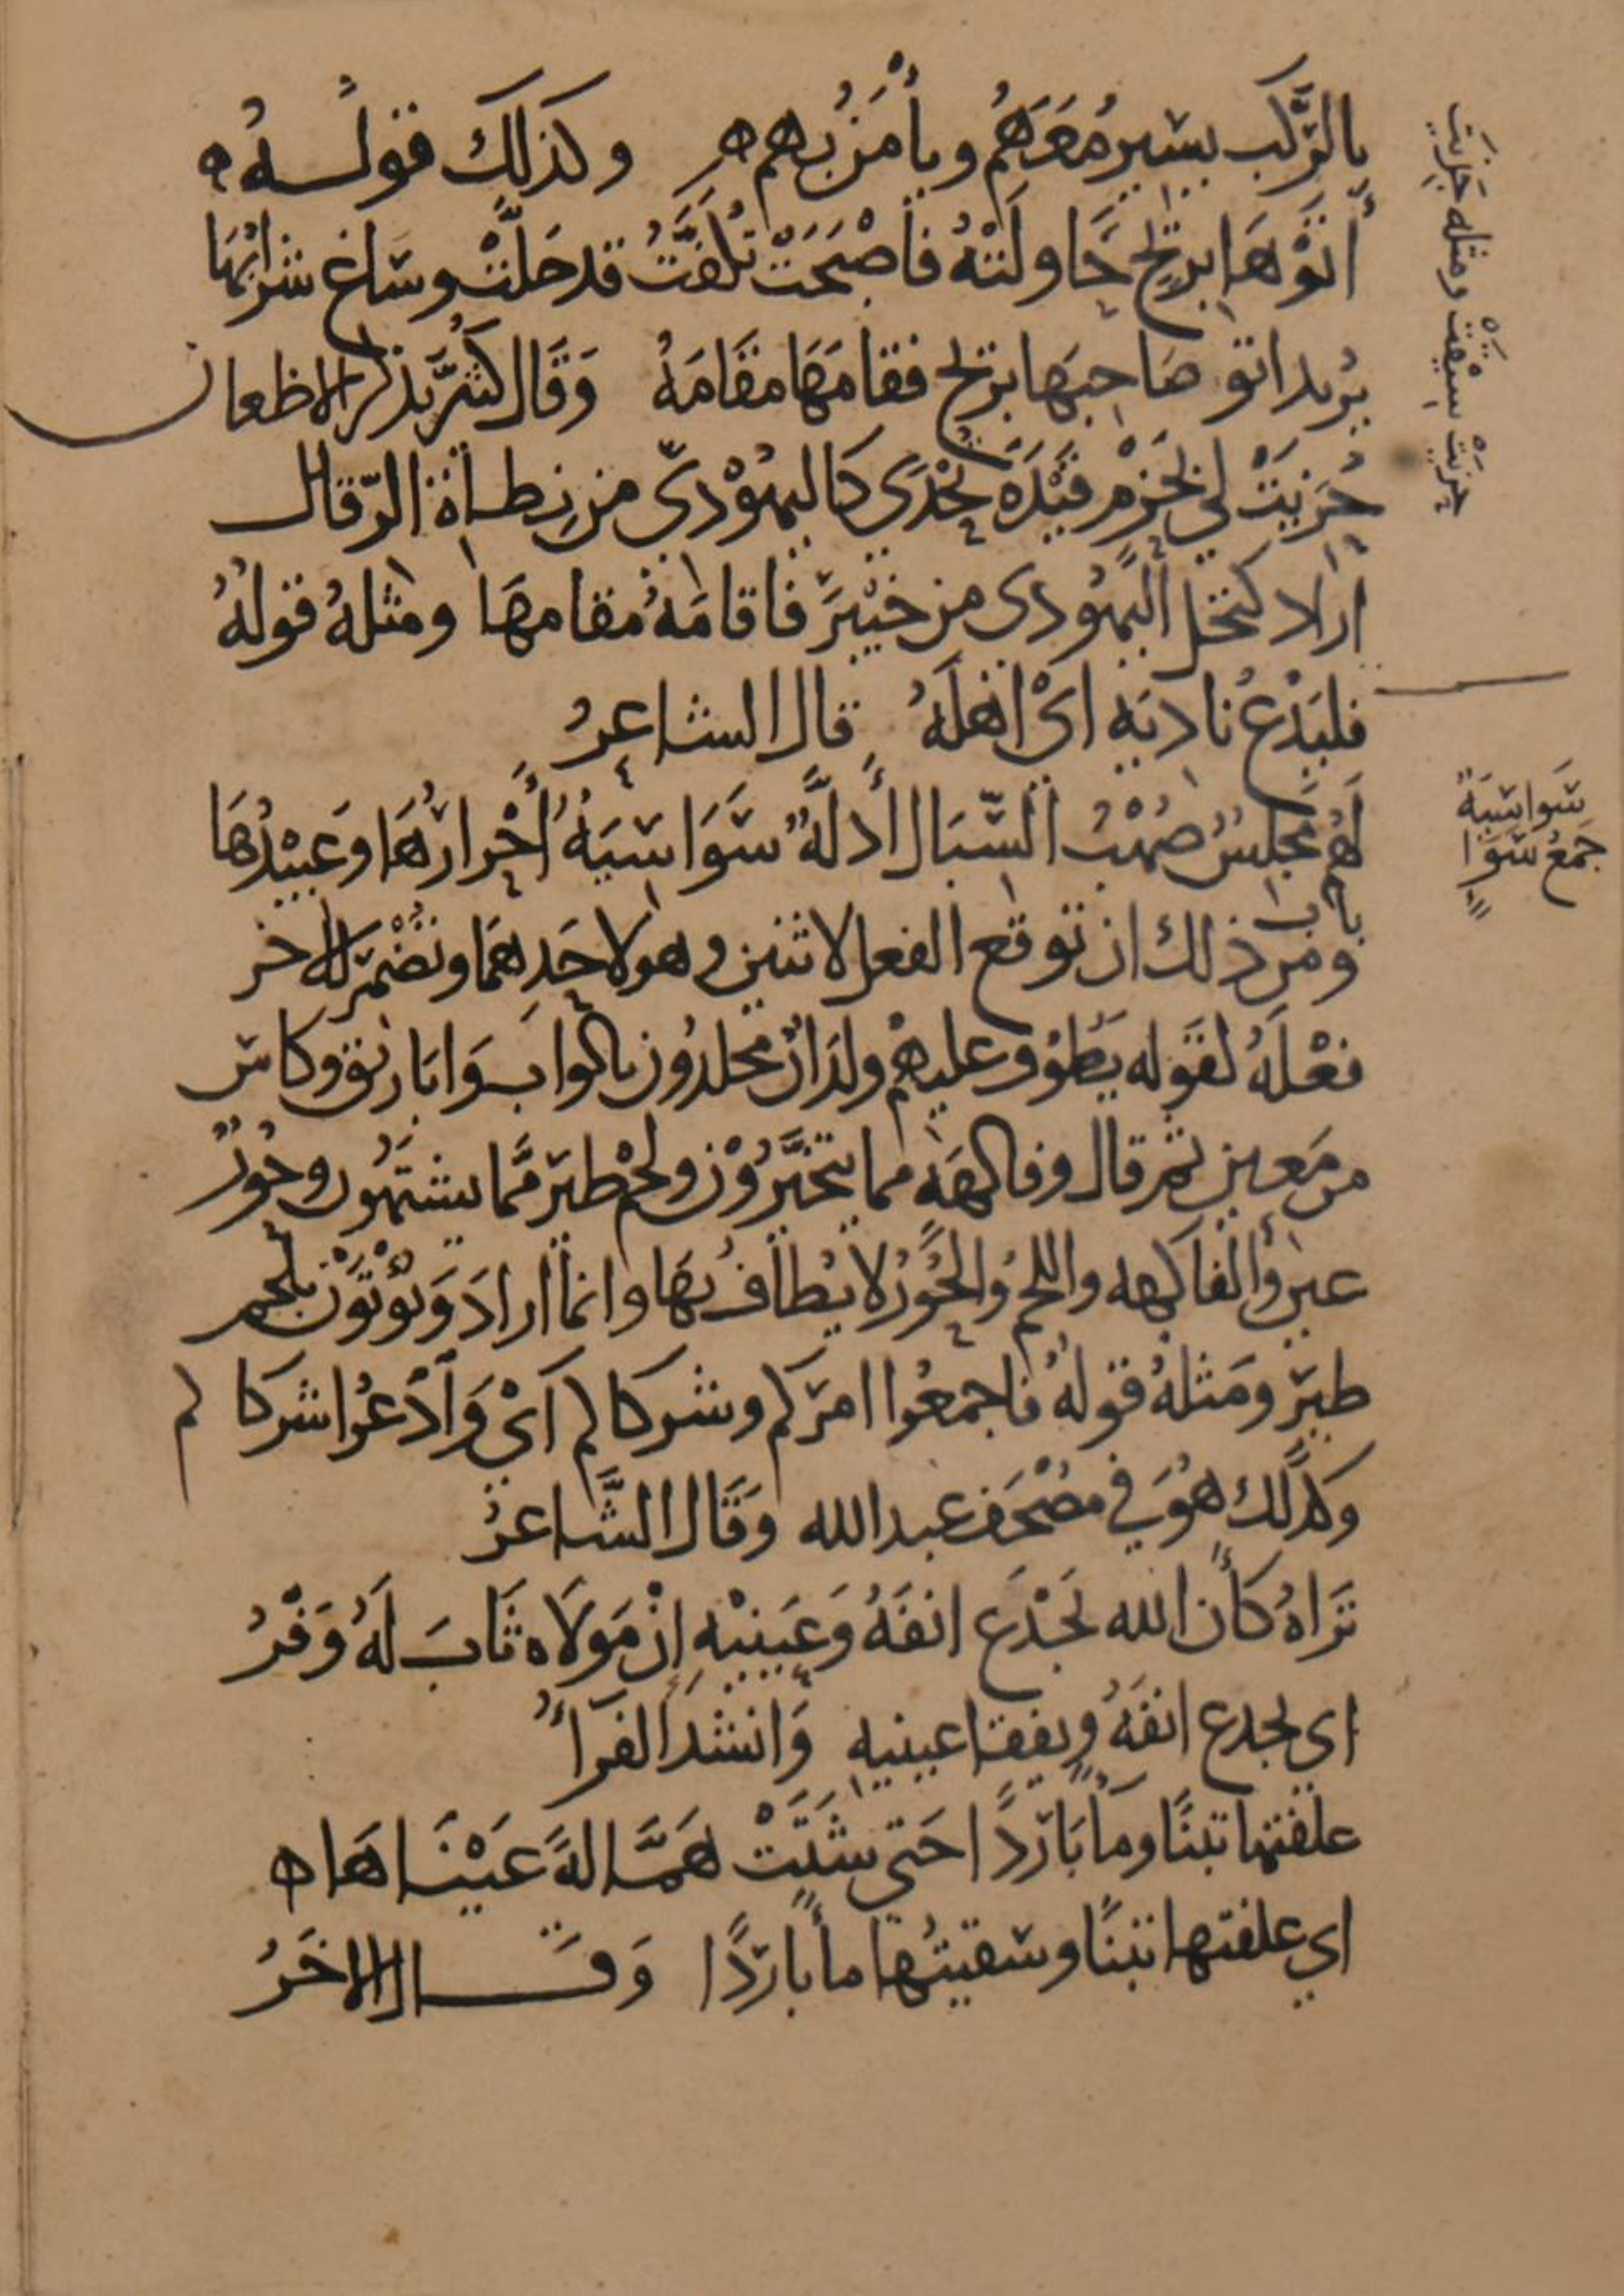 بالرَّكب يسير مَعَهُم ويأمَن بُهم وكذلك قولُه
أتَوْهَا بربْحٍ حَاولَتْهُ فأصْبَحَتْ تُكفَّتُ قد حَلَّتْ وساغ شرابُهَا
يُريد اتو صَاحِبَهَا بربح فقامَهَا مقَامَهُ وَقَال كُثيّر يذكر الاظعان
حُزِيَتْ لي بحَزْمِ فَيْدَة تُحْدَى كاليَهُوْديّ من نِطاة الرّقال
اراد كنخل اليَهُودي من خَيْبَر فاقامَهُ مقامهَا ومثله قولُهُ
فليَدْعُ ناديَه ايْ اهلَهُ قال الشاعِرُ
لَهُم مجلسٌ صُهْبُ السّبَال أَدلَّةٌ سَوَاسيَةٌ أَحْرارُهَا وَعَبيْدُهَا
باب
ومن ذلك ان توقع الفعل لاثنين وهو لاحَدهمَا وتُضْمِر للاخر
فعْلَهُ لقوَله يَطُوْف عليهمْ ولدَانٌ مخلدُون باكوابٍ وَابَاريق وكاس
من مَعين ثم قال وفاكهَة مما يتخَيَّرُوْن ولحْم طيَر مَّما يشتهُون وحُوْرٌ
عين والفاكهه واللحمُ والحُورُ لا يُطافُ بهَا وانما ارادَ وَيُؤْتَوْن بلحم
طيَرٍ ومَثلهُ قولهُ فاجمعُوا امرَكم وشركاكم اَيْ وَاَدْعُوا شركاكم
وَكذَلك هُوَ في مصْحَف عبد الله وَقَال الشَّاعرُ
تَرَاهُ كَأن الله يَجْدَع انفَهُ وَعَينيْهِ إنْ مَولَاه ثَابَ لَهُ وَفْرُ
اي يجدع انفَهُ ويفقا عينيه وَانشدَ الفرَّاءُ
علفتها تبنًا وماً بَاردًا حَتى شَتَتْ هَمَّالهً عَيْنَاهَا
اي علفتها تبنًا وسقيتُها مأً باردًا وَقَال الاخَرُ
حَزَيَت ومثله حَزَيَت
سَواسيَة
جمعُ سَوَاءٍ